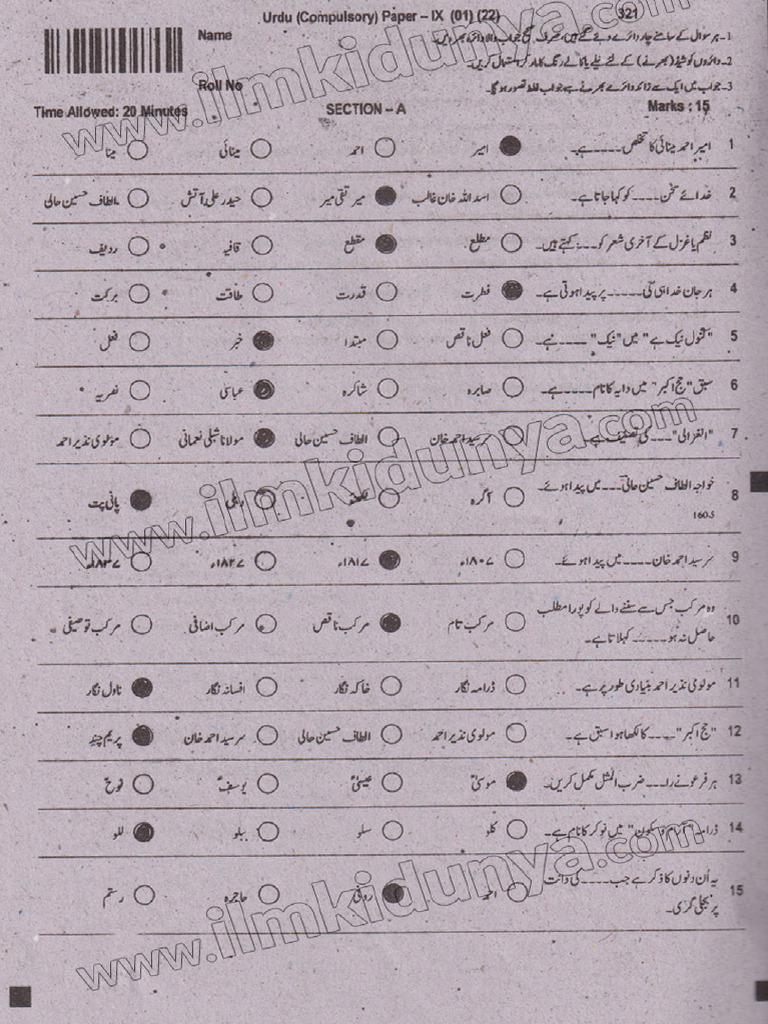 Urdu (Compulsory) Paper – IX (01) (22)
321
Name
1- ہر سوال کے سامنے چار دائرے دیے گئے ہیں، صرف صحیح جواب والا دائرہ بھر دیں۔
2- دائروں کو شیڈ (بھرنے) کے لئے نیلے یا کالے رنگ کا مارکر استعمال کریں۔
Roll No
3- جواب میں ایک سے زائد دائرے بھرنے سے جواب غلط تصور ہوگا۔
Time Allowed: 20 Minutes SECTION – A Marks : 15
1 امیر احمد مینائی کا تخلص ۔۔۔۔ ہے۔ امیر احمد مینائی مینا
2 خدائے سخن ۔۔۔۔ کو کہا جاتا ہے۔ اسد اللہ خان غالب میر تقی میر حیدر علی آتش الطاف حسین حالی
3 نظم یا غزل کے آخری شعر کو ۔۔۔ کہتے ہیں۔ مطلع مقطع قافیہ ردیف
4 ہر جان خدا ہی کی ۔۔۔۔۔ پر پیدا ہوتی ہے۔ فطرت قدرت طاقت برکت
5 "کنول نیک ہے" میں "نیک" ۔۔۔۔ ہے۔ فعل ناقص مبتدا خبر فعل
6 سبق "حج اکبر" میں دایہ کا نام ۔۔۔۔ ہے۔ صابرہ شاکرہ عباسی نصریہ
7 "الغزالی" ۔۔۔ کی تصنیف ہے۔ سر سید احمد خان الطاف حسین حالی مولانا شبلی نعمانی مولوی نذیر احمد
8 خواجہ الطاف حسین حالی ۔۔۔ میں پیدا ہوئے۔ آگرہ لکھنؤ دہلی پانی پت
1605
9 سر سید احمد خان ۔۔۔۔ میں پیدا ہوئے۔ ۱۸۰۷ء ۱۸۱۷ء ۱۸۲۷ء ۱۸۳۷ء
10 وہ مرکب جس سے سننے والے کو پورا مطلب
حاصل نہ ہو ۔۔۔۔۔ کہلاتا ہے۔ مرکب تام مرکب ناقص مرکب اضافی مرکب توصیفی
11 مولوی نذیر احمد بنیادی طور پر ہے۔ ڈرامہ نگار خاکہ نگار افسانہ نگار ناول نگار
12 "حج اکبر" ۔۔۔۔ کا لکھا ہوا سبق ہے۔ مولوی نذیر احمد الطاف حسین حالی سر سید احمد خان پریم چند
13 ہر فرعونے را ۔۔۔ ضرب المثل مکمل کریں۔ موسیٰؑ عیسیٰؑ یوسفؑ نوحؑ
14 ڈرامہ "آرام و سکون" میں نوکر کا نام ہے۔ کلو سلو ببلو للو
15 یہ اُن دنوں کا ذکر ہے جب ۔۔۔۔ کی دانت
پر بجلی گری۔ احمد روفی حاجرہ رستم
www.ilmkidunya.com
www.ilmkidunya.com
www.ilmkidunya.com